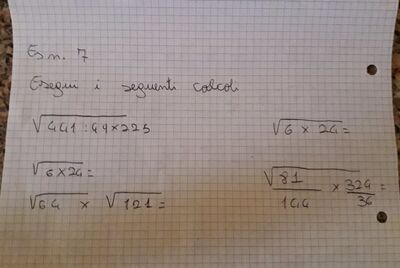 Es n. 7
Esegui i seguenti calcoli
√441 : 49 × 225
√6 × 24 =
√6 × 24 =
√81/144 × 324/36 =
√64 × √121 =